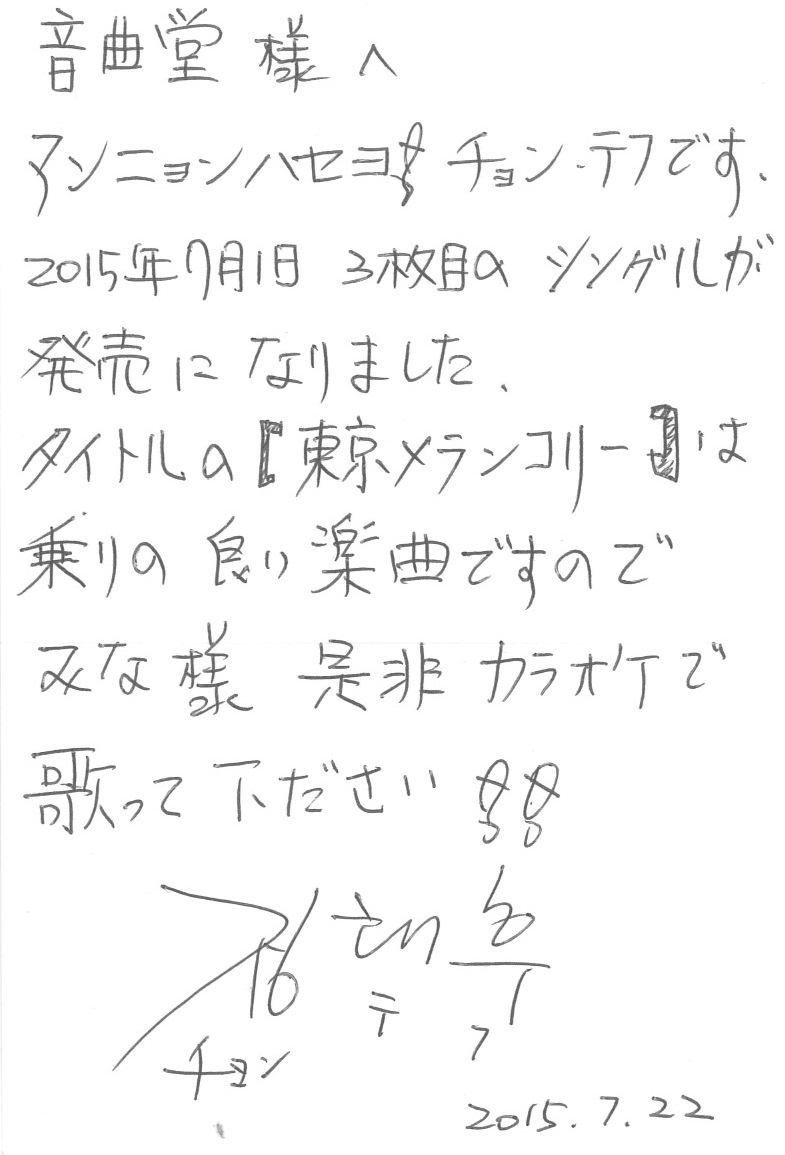 音曲堂 様へ
アンニョンハセヨ!! チョン・テフです。
2015年7月1日 3枚目の シングルが
発売に なりました。
タイトルの【東京メランコリー】は
乗りの 良い 楽曲ですので
みな様 是非 カラオケで
歌って 下ださい!!
정 태 후
チョン テ フ
2015.7.22